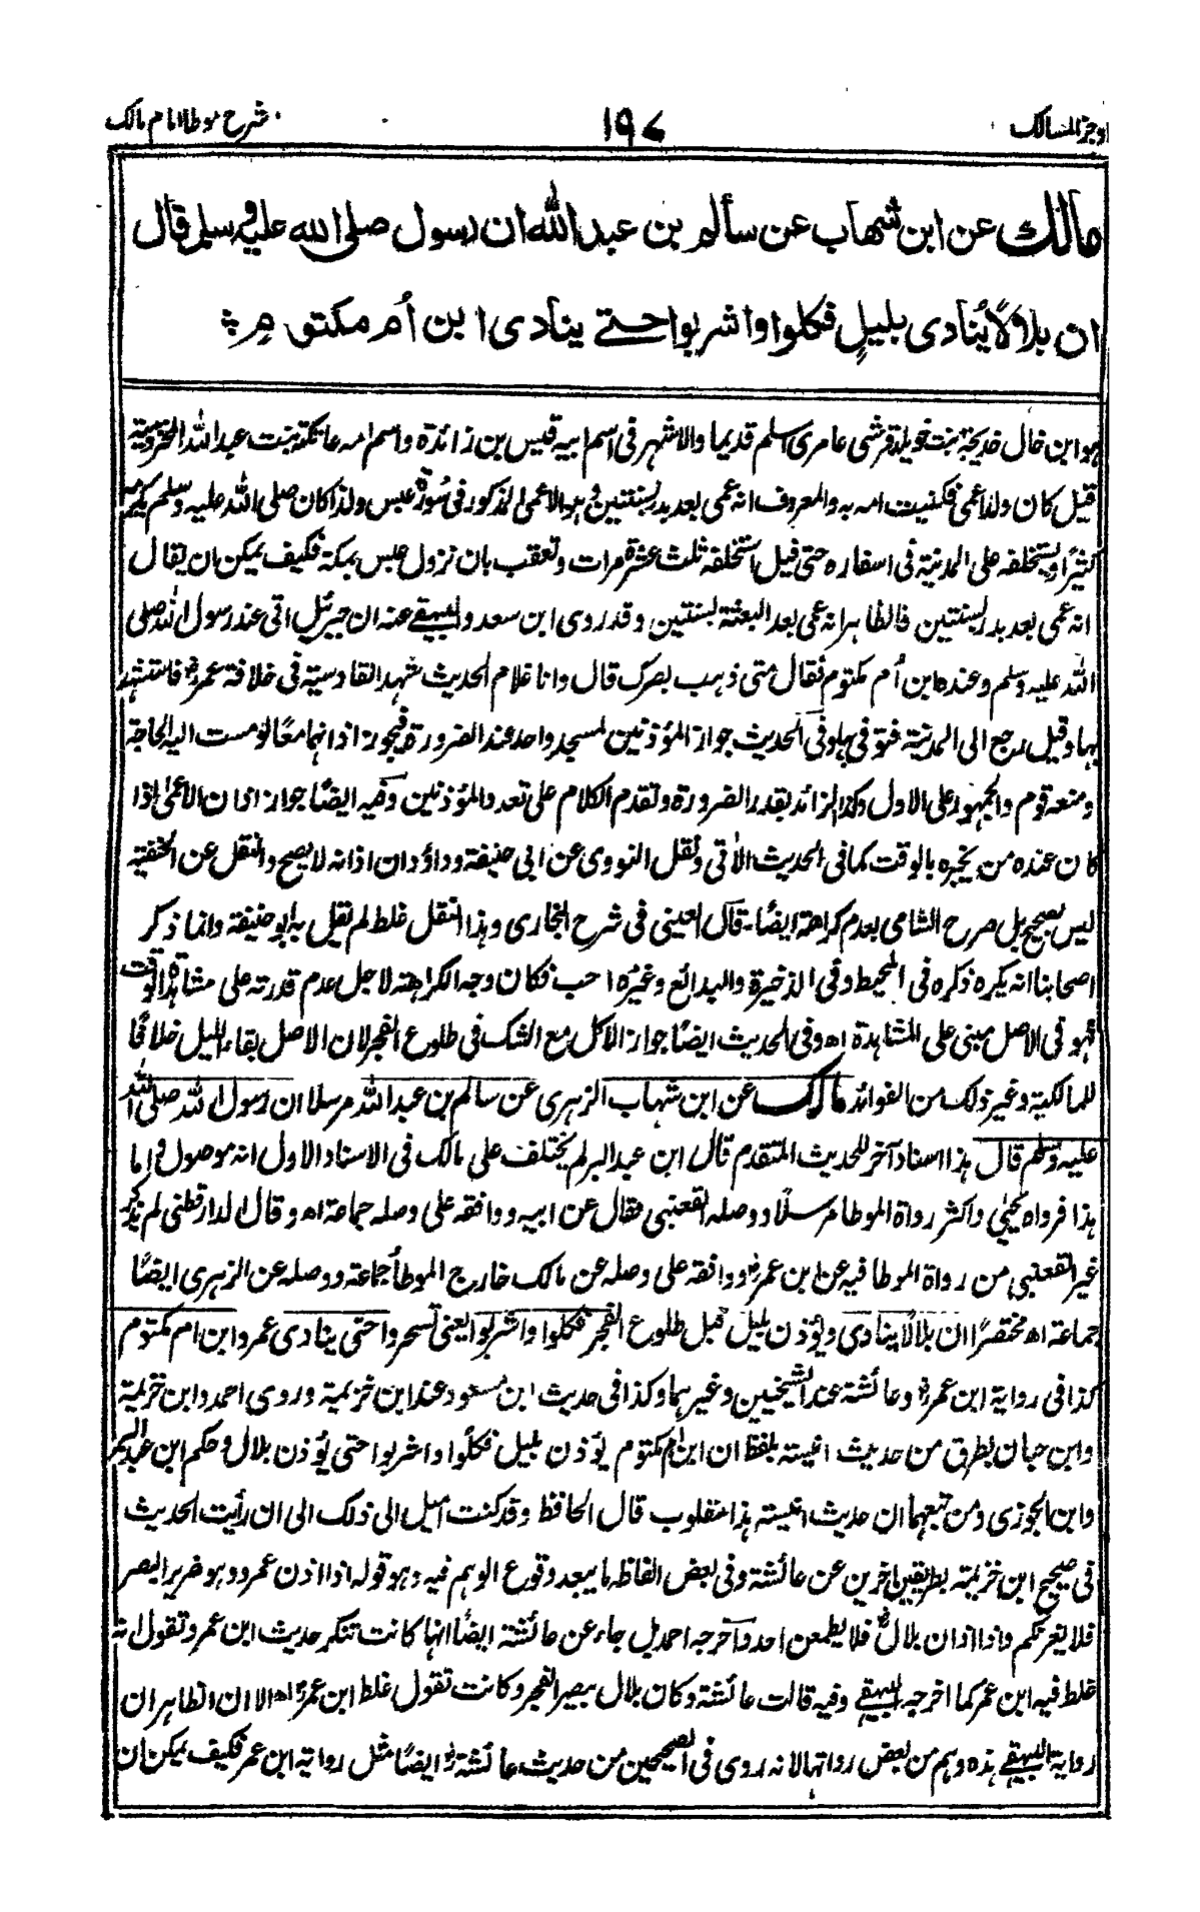 اوجز المسالک
۱۹۷
شرح موطا امام مالک
مالك عن ابن شهاب عن سالم بن عبد الله ان رسول صلى الله عليه وسلم قال
ان بلالاً يُنادي بليلٍ فكلوا واشربوا حتے ينادى ابن اُم مكتوم ؞
ہو ابن خال خديجة بنت خويلد قرشى عامرى اسلم قديما والاشهر فى اسم ابيه قيس بن زائدة واسم امه عاتكة بنت عبد الله المخزومية
قيل كان ولد اعمى فكنيت امه به والمعروف انه عمى بعد بدر بسنتين وہو الاعمى المذكور فى سورة عبس ولذا كان صلى الله عليه وسلم يكرمه
كثيرًا ويستخلفه على المدينة فى اسفاره حتى قيل استخلفه ثلث عشرة مرات وتعقب بان نزول عبس بمكة فكيف يمكن ان يقال
انه عمى بعد بدر بسنتين فالظاہر انه عمى بعد البعثة بسنتين وقد روى ابن سعد والبيہقے عنه ان جبرئيل اتى عند رسول الله صلى
الله عليه وسلم وعنده ابن اُم مكتوم فقال متى ذہب بصرك قال وانا غلام الحديث شہد القادسية فى خلافة عمر فاستشہد
بہا وقيل رجع الى المدينة فتوفى بہا وفى الحديث جواز المؤذنين لمسجد واحد عند الضرورة فيجوز اذانہما معًا لو مست اليه الحاجة
ومنعه قوم والجمہور على الاول وكذا الزائد بقدر الضرورة وتقدم الكلام على تعدد المؤذنين وفيه ايضًا جواز اذان الاعمى اذا
كان عنده من يخبره بالوقت كما فى الحديث الآتى ونقل النووى عن ابى حنيفة وداؤد ان اذانه لا يصح والنقل عن الحنفية
ليس بصحيح بل صرح الشامى بعدم كراهة ايضًا۔ قال العينى فى شرح البخارى وہذا النقل غلط لم نقل به ابو حنيفة وانما ذكر
اصحابنا انه يكره ذكره فى المحيط وفى الذخيرة والبدائع وغيره احب فكان وجه الكراهة لاجل عدم قدرته على مشاهدة الوقت
فہو فى الاصل مبنى على المشاہدة اھ وفى الحديث ايضًا جواز الاكل مع الشك فى طلوع الفجر لان الاصل بقاء الليل خلافًا
للمالكية وغير ذلك من الفوائد مالك عن ابن شہاب الزہرى عن سالم بن عبد الله مرسلا ان رسول الله صلى الله
عليه وسلم قال ہذا اسناد آخر للحديث المتقدم قال ابن عبد البر لم يختلف على مالك فى الاسناد الاول انه موصول واما
ہذا فرواه يحيٰى واكثر رواة الموطا مرسلًا ووصله القعنبى فقال عن ابيه ووافقه على وصله جماعة اھ وقال الدارقطنى لم يذكر
غير القعنبى من رواة الموطا فيه عن ابن عمر ووافقه على وصله عن مالك خارج الموطأ جماعة ووصله عن الزہرى ايضًا
جماعة اھ مختصرًا ان بلالًا ينادى ويؤذن بليل قبل طلوع الفجر فكلوا واشربوا يعنى تسحروا حتى ينادى عمرو ابن ام مكتوم
كذا فى رواية ابن عمر وعائشة عند الشيخين وغيرہما وكذا فى حديث ابن مسعود عند ابن خزيمة وروى احمد وابن خزيمة
وابن حبان بطرق من حديث انيسة بلفظ ان ابن ام مكتوم يؤذن بليل فكلوا واشربوا حتى يؤذن بلال وحكم ابن عبد البر
وابن الجوزى ومن تبعہما ان حديث انيسة ہذا مقلوب قال الحافظ وقد كنت اميل الى ذلك الى ان رأيت الحديث
فى صحيح ابن خزيمة بطريقين اخرين عن عائشة وفى بعض الفاظه ما يبعد وقوع الوہم فيه وہو قوله اذا اذن عمرو وہو ضرير البصر
فلا يغرنكم واذا اذان بلال فلا يطعمن احد واخرجه احمد بل جاء عن عائشة ايضًا انہا كانت تنكر حديث ابن عمر وتقول انه
غلط فيه ابن عمر كما اخرجه البيہقے وفيه قالت عائشة وكان بلال يبصر الفجر وكانت تقول غلط ابن عمر اھ الا ان الظاہر ان
رواية البيہقے ہذه وہم من بعض رواتہا لانه روى فى الصحيحين من حديث عائشة ايضًا مثل رواية ابن عمر فكيف يمكن ان